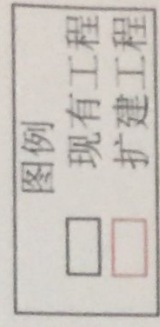 图例
现有工程
扩建工程